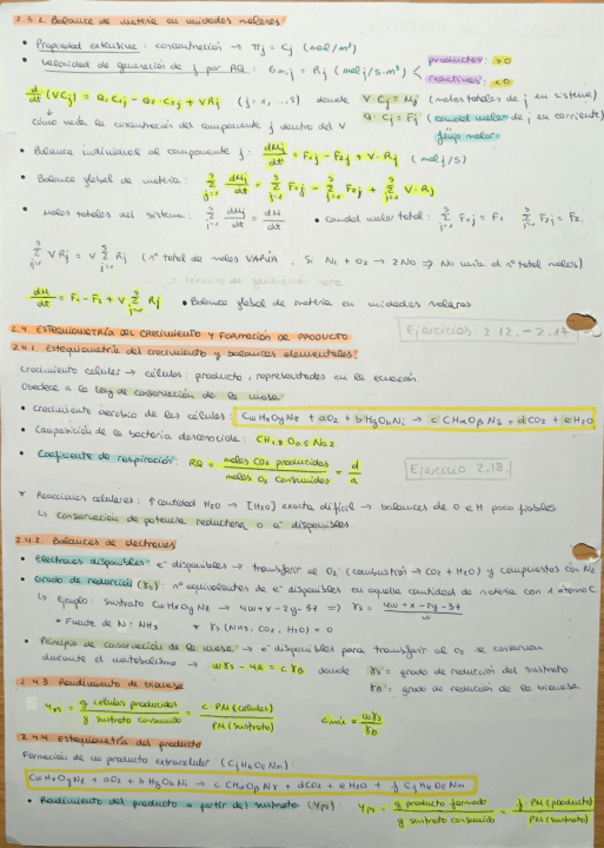 2.3.2. Balance de materia en unidades molares
• Propiedad extensiva: concentración → πj = Cj (mol/m³)
• Velocidad de generación de j por RQ: Gm,j = Rj (mol j/s·m³) < productos: >0
reactivos: <0
d/dt (VCj) = Q₁C₁j - Q₂·C₂j + VRj (j=1,...,S) donde V·Cj = Mj (moles totales de j en sistema)
Q·Cj = Fj (caudal molar de j en corriente)
Cómo varía la concentración del componente j dentro del V
flujo molar
• Balance individual al componente j: dMj/dt = F₁j - F₂j + V·Rj (mol j/s)
• Balance global de materia: Σ dMj/dt = Σ F₁j - Σ F₂j + Σ V·Rj
• Moles totales del sistema: Σ dMj/dt = dM/dt • Caudal molar total: Σ F₁j = F₁ Σ F₂j = F₂
Σ VRj = V Σ Rj (nº total de moles VARÍA, si N₂ + O₂ → 2NO ⇒ No varía el nº total moles)
↳ término de generación neta
dM/dt = F₁ - F₂ + V Σ Rj • Balance global de materia en unidades molares
2.4. ESTEQUIOMETRÍA DEL CRECIMIENTO Y FORMACIÓN DE PRODUCTO
Ejercicios 2.12.-2.17
2.4.1. Estequiometría del crecimiento y balances elementales:
Crecimiento celular → células: producto, representadas en la ecuación.
Obedece a la ley de conservación de la masa
• Crecimiento aerobio de las células: CwHxOyNz + aO₂ + bHgOhNi → cCHαOβNδ + dCO₂ + eH₂O
• Composición de la bacteria desconocida: CH1.8O0.5N0.2
• Coeficiente de respiración: RQ = moles CO₂ producidos / moles O₂ consumidos = d/a
Ejercicio 2.18.
* Reacciones celulares: ↑ cantidad H₂O → [H₂O] exacta difícil → balances de O e H poco fiables
↳ conservación de potencia reductora o e⁻ disponibles
2.4.2. Balances de electrones
• Electrones disponibles: e⁻ disponibles → transferir al O₂ (combustión → CO₂ + H₂O) y compuestos con N₂
• Grado de reducción (γs): nº equivalentes de e⁻ disponibles en aquella cantidad de materia con 1 átomo C
↳ Ejemplo: sustrato CwHxOyNz → 4w+x-2y-3z ⇒ γs = 4w+x-2y-3z / w
* Fuente de N: NH₃ * γs (NH₃, CO₂, H₂O) = 0
• Principio de conservación de la masa: → e⁻ disponibles para transferir al O₂ se conservan
durante el metabolismo → wγs - 4a = cγB donde γs = grado de reducción del sustrato
γB = grado de reducción de la biomasa
2.4.3. Rendimiento de biomasa
Yxs = g células producidas / g sustrato consumido = c·PM(células) / PM(sustrato)
Cmax = wγs / γB
2.4.4. Estequiometría del producto
Formación de un producto extracelular (CjHkOlNm)
CwHxOyNz + aO₂ + bHgOhNi → cCHαOβNδ + dCO₂ + eH₂O + f CjHkOlNm
• Rendimiento del producto a partir del sustrato (Yps): Yps = g producto formado / g sustrato consumido = f·PM(producto) / PM(sustrato)